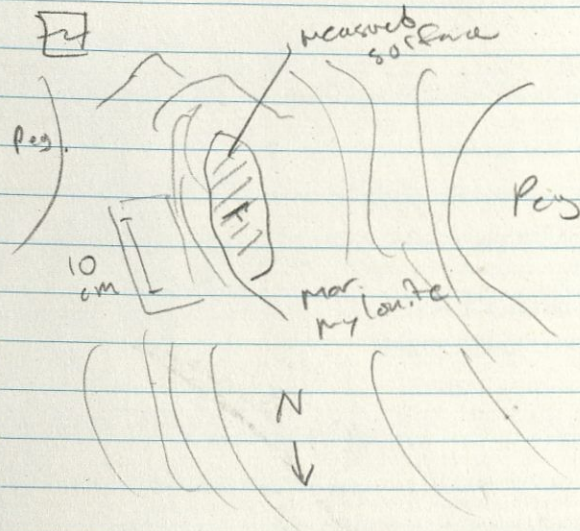 measured
surface
Peg.
Peg
10
cm
mar.
mylonite
N